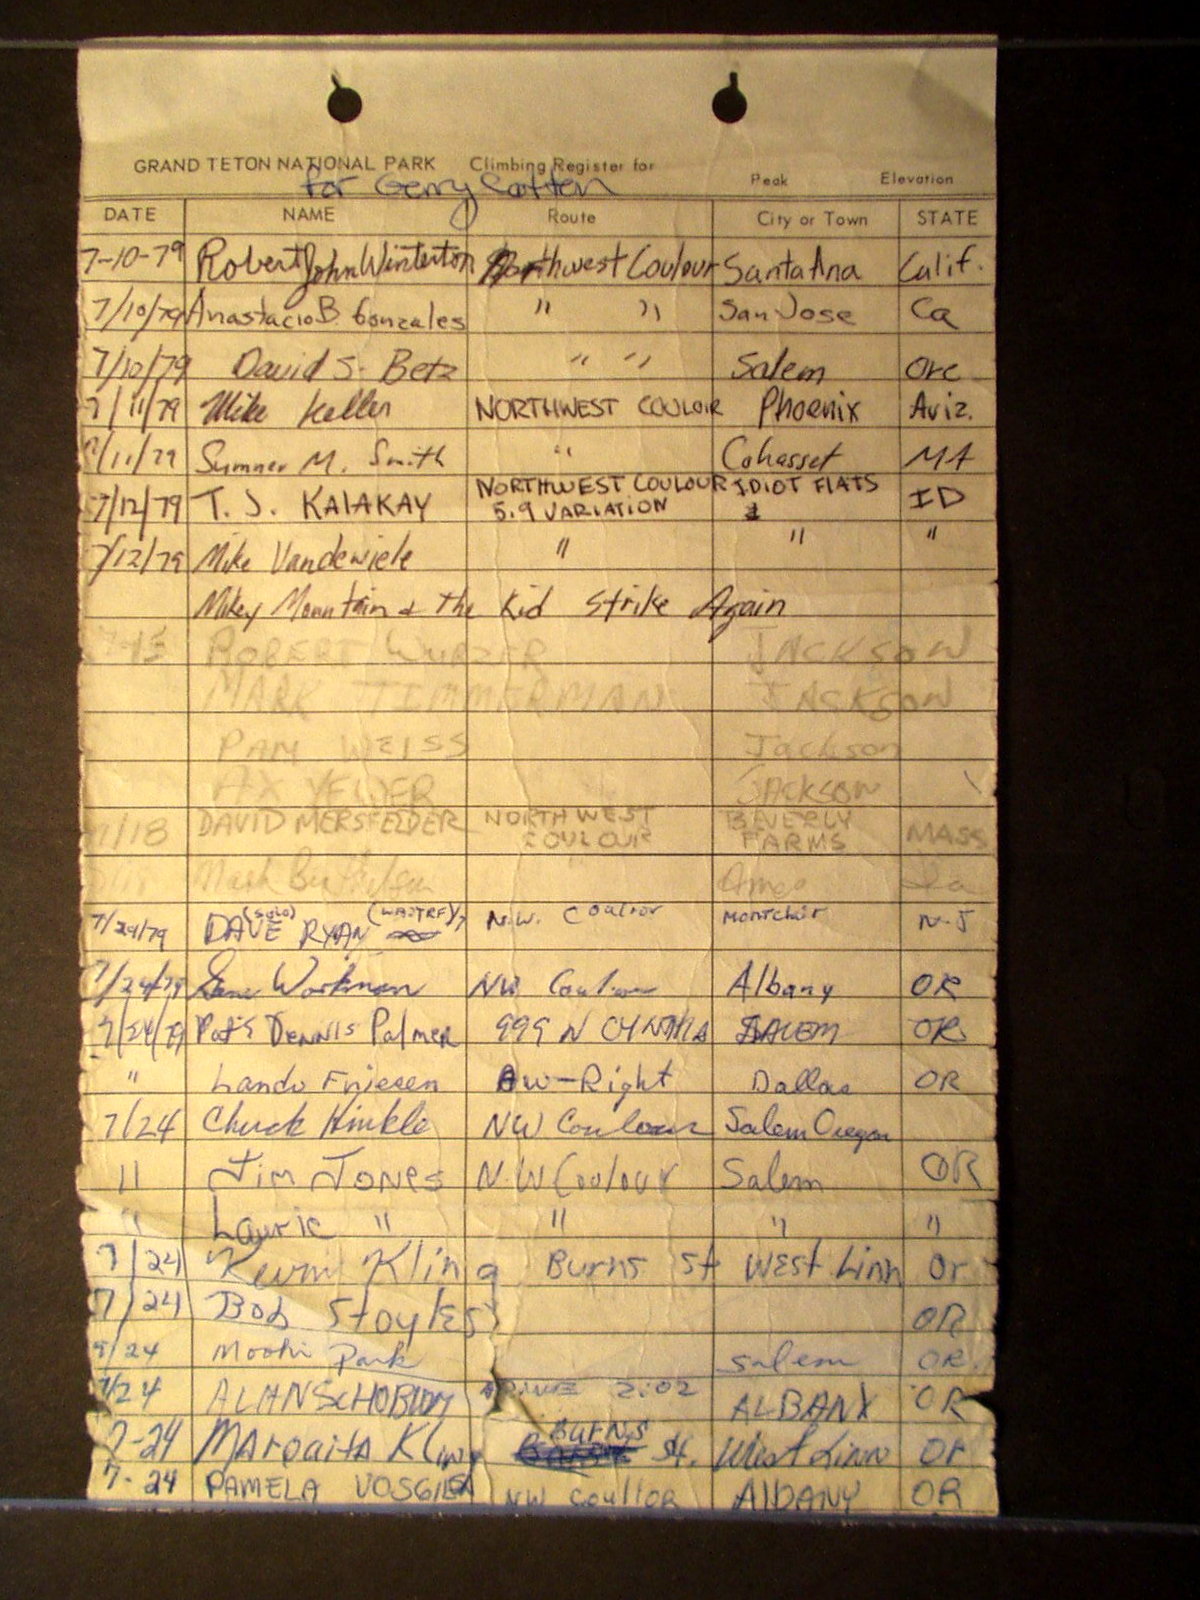 GRAND TETON NATIONAL PARK Climbing Register for
for Gerry Cotten
Peak Elevation
DATE NAME Route City or Town STATE
7-10-79 Robert John Winterton Northwest Coulour Santa Ana Calif.
7/10/79 Anastacio B Gonzales " " San Jose Ca
7/10/79 David S. Betz " " Salem Ore
7/11/79 Mike Keller NORTHWEST COULOIR Phoenix Ariz.
7/11/79 Sumner M. Smith " Cohasset MA
7/12/79 T. J. KALAKAY NORTHWEST COULOUR IDIOT FLATS ID
5.9 VARIATION
7/12/79 Mike Vandewiele " " "
Mikey Mountain & the Kid Strike Again
7-15 ROBERT WURZER JACKSON
MARK TIMMERMAN JACKSON
PAM WEISS Jackson
YELDER JACKSON
7/18 DAVID MERSFELDER NORTHWEST COULOUR BEVERLY FARMS MASS
Mark Ames Ia
7/24/79 DAVE (SOLO) RYAN N.W. Coulior Montclair N.J
7/24/79 Workman NW Albany OR
7/24/79 Pat & DENNIS PalMER 999 N SALEM OR
" Lando Friesen NW-Right Dallas OR
7/24 Chuck Hinkle NW Coulour Salem Oregon
" Jim Jones N.W Coulour Salem OR
" Laurie " " " "
7/24 Kevin Kling Burns St West Linn Or
7/24 Bob Stoykes OR
/24 Park Salem OR
7/24 ALAN 2:02 ALBANY OR
7-24 MArgaita Kling Burns St. West Linn Or
7-24 PAMELA NW COULIOR AlBANY OR